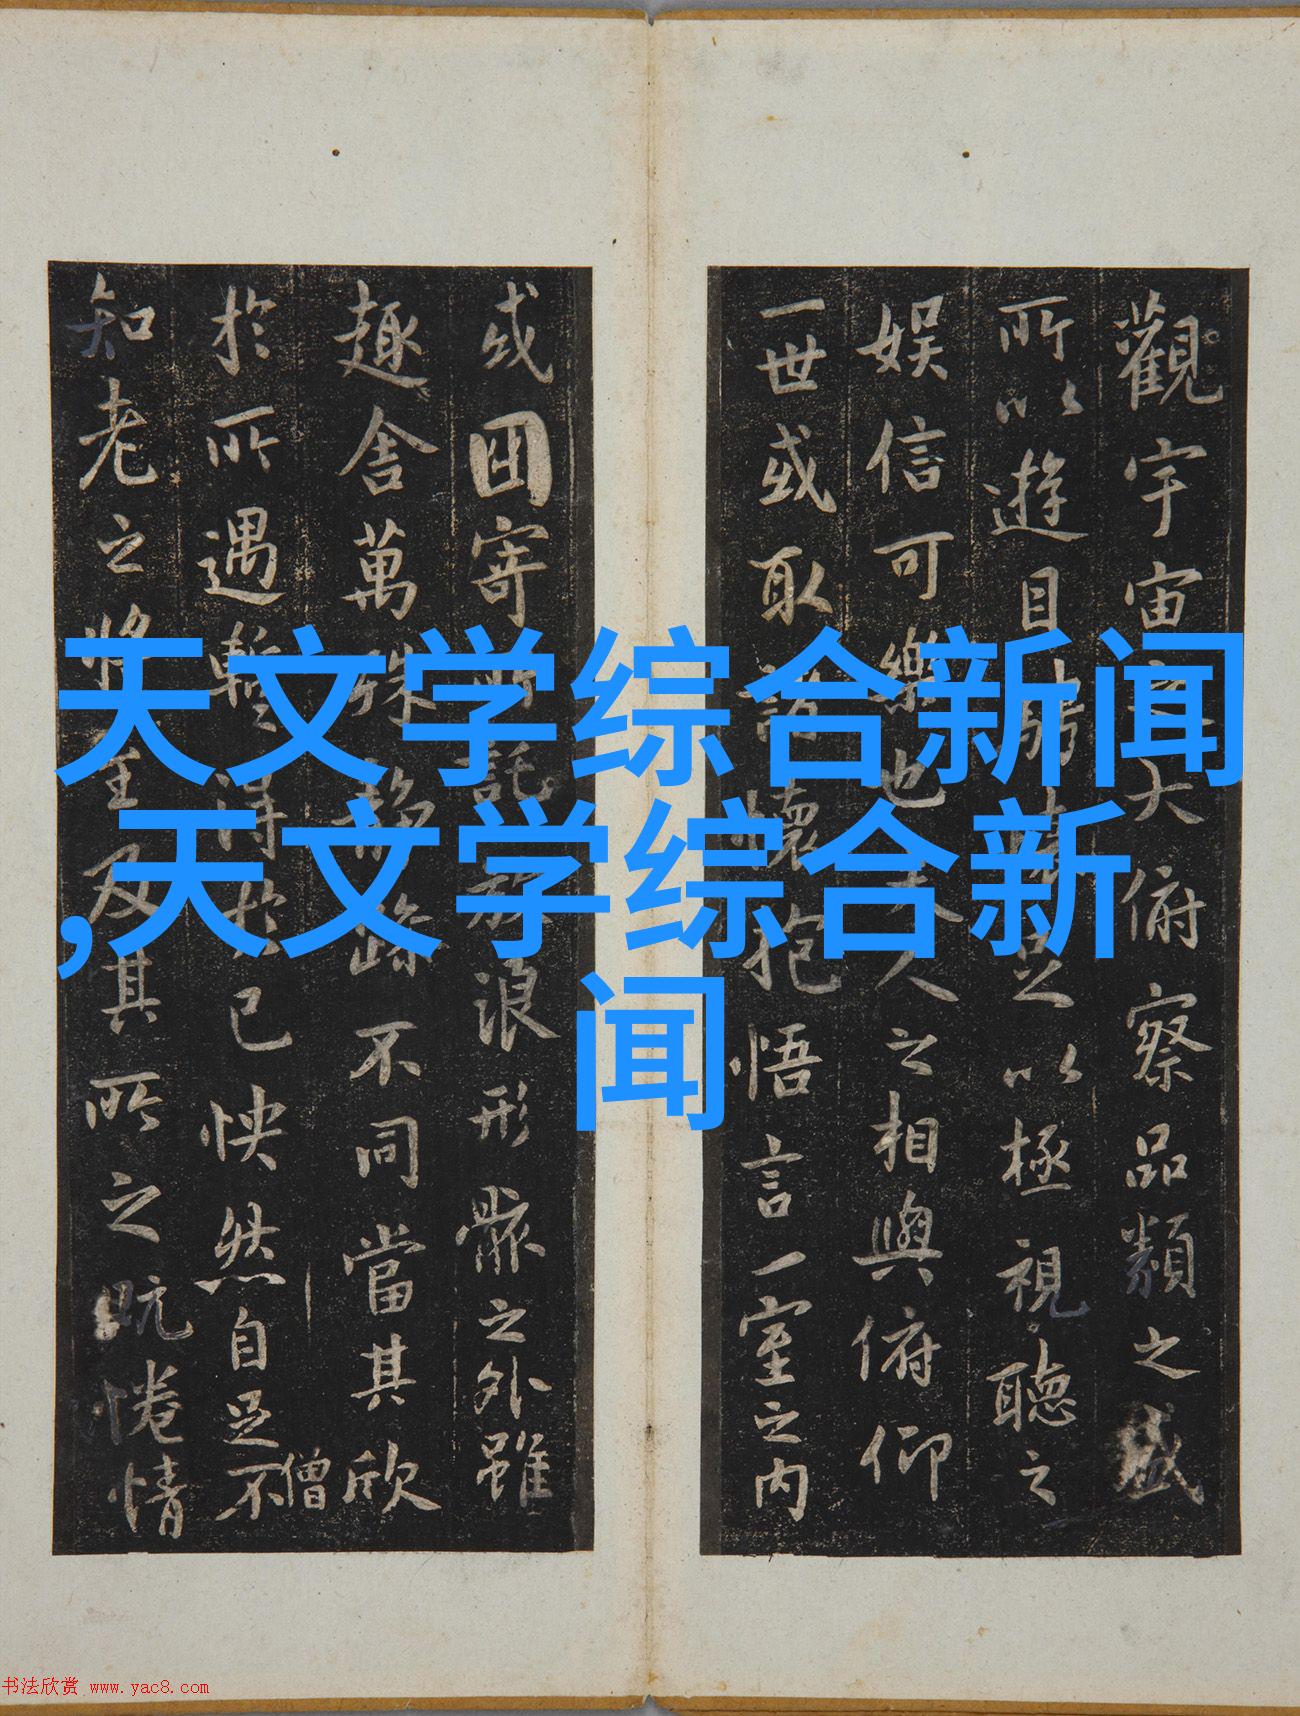 天文学综合新闻
,天文学综合新
闻
觀宇宙之大俯察品類之盛
所以遊目騁懷足以極視聽之
娛信可樂也夫人之相與俯仰
一世或取諸懷抱悟言一室之内
或因寄所託放浪形骸之外雖
趣舍萬殊静躁不同當其欣
於所遇暫得於己怏然自足不
僧
知老之將至及其所之既惓情
书法欣赏 www.yac8.com